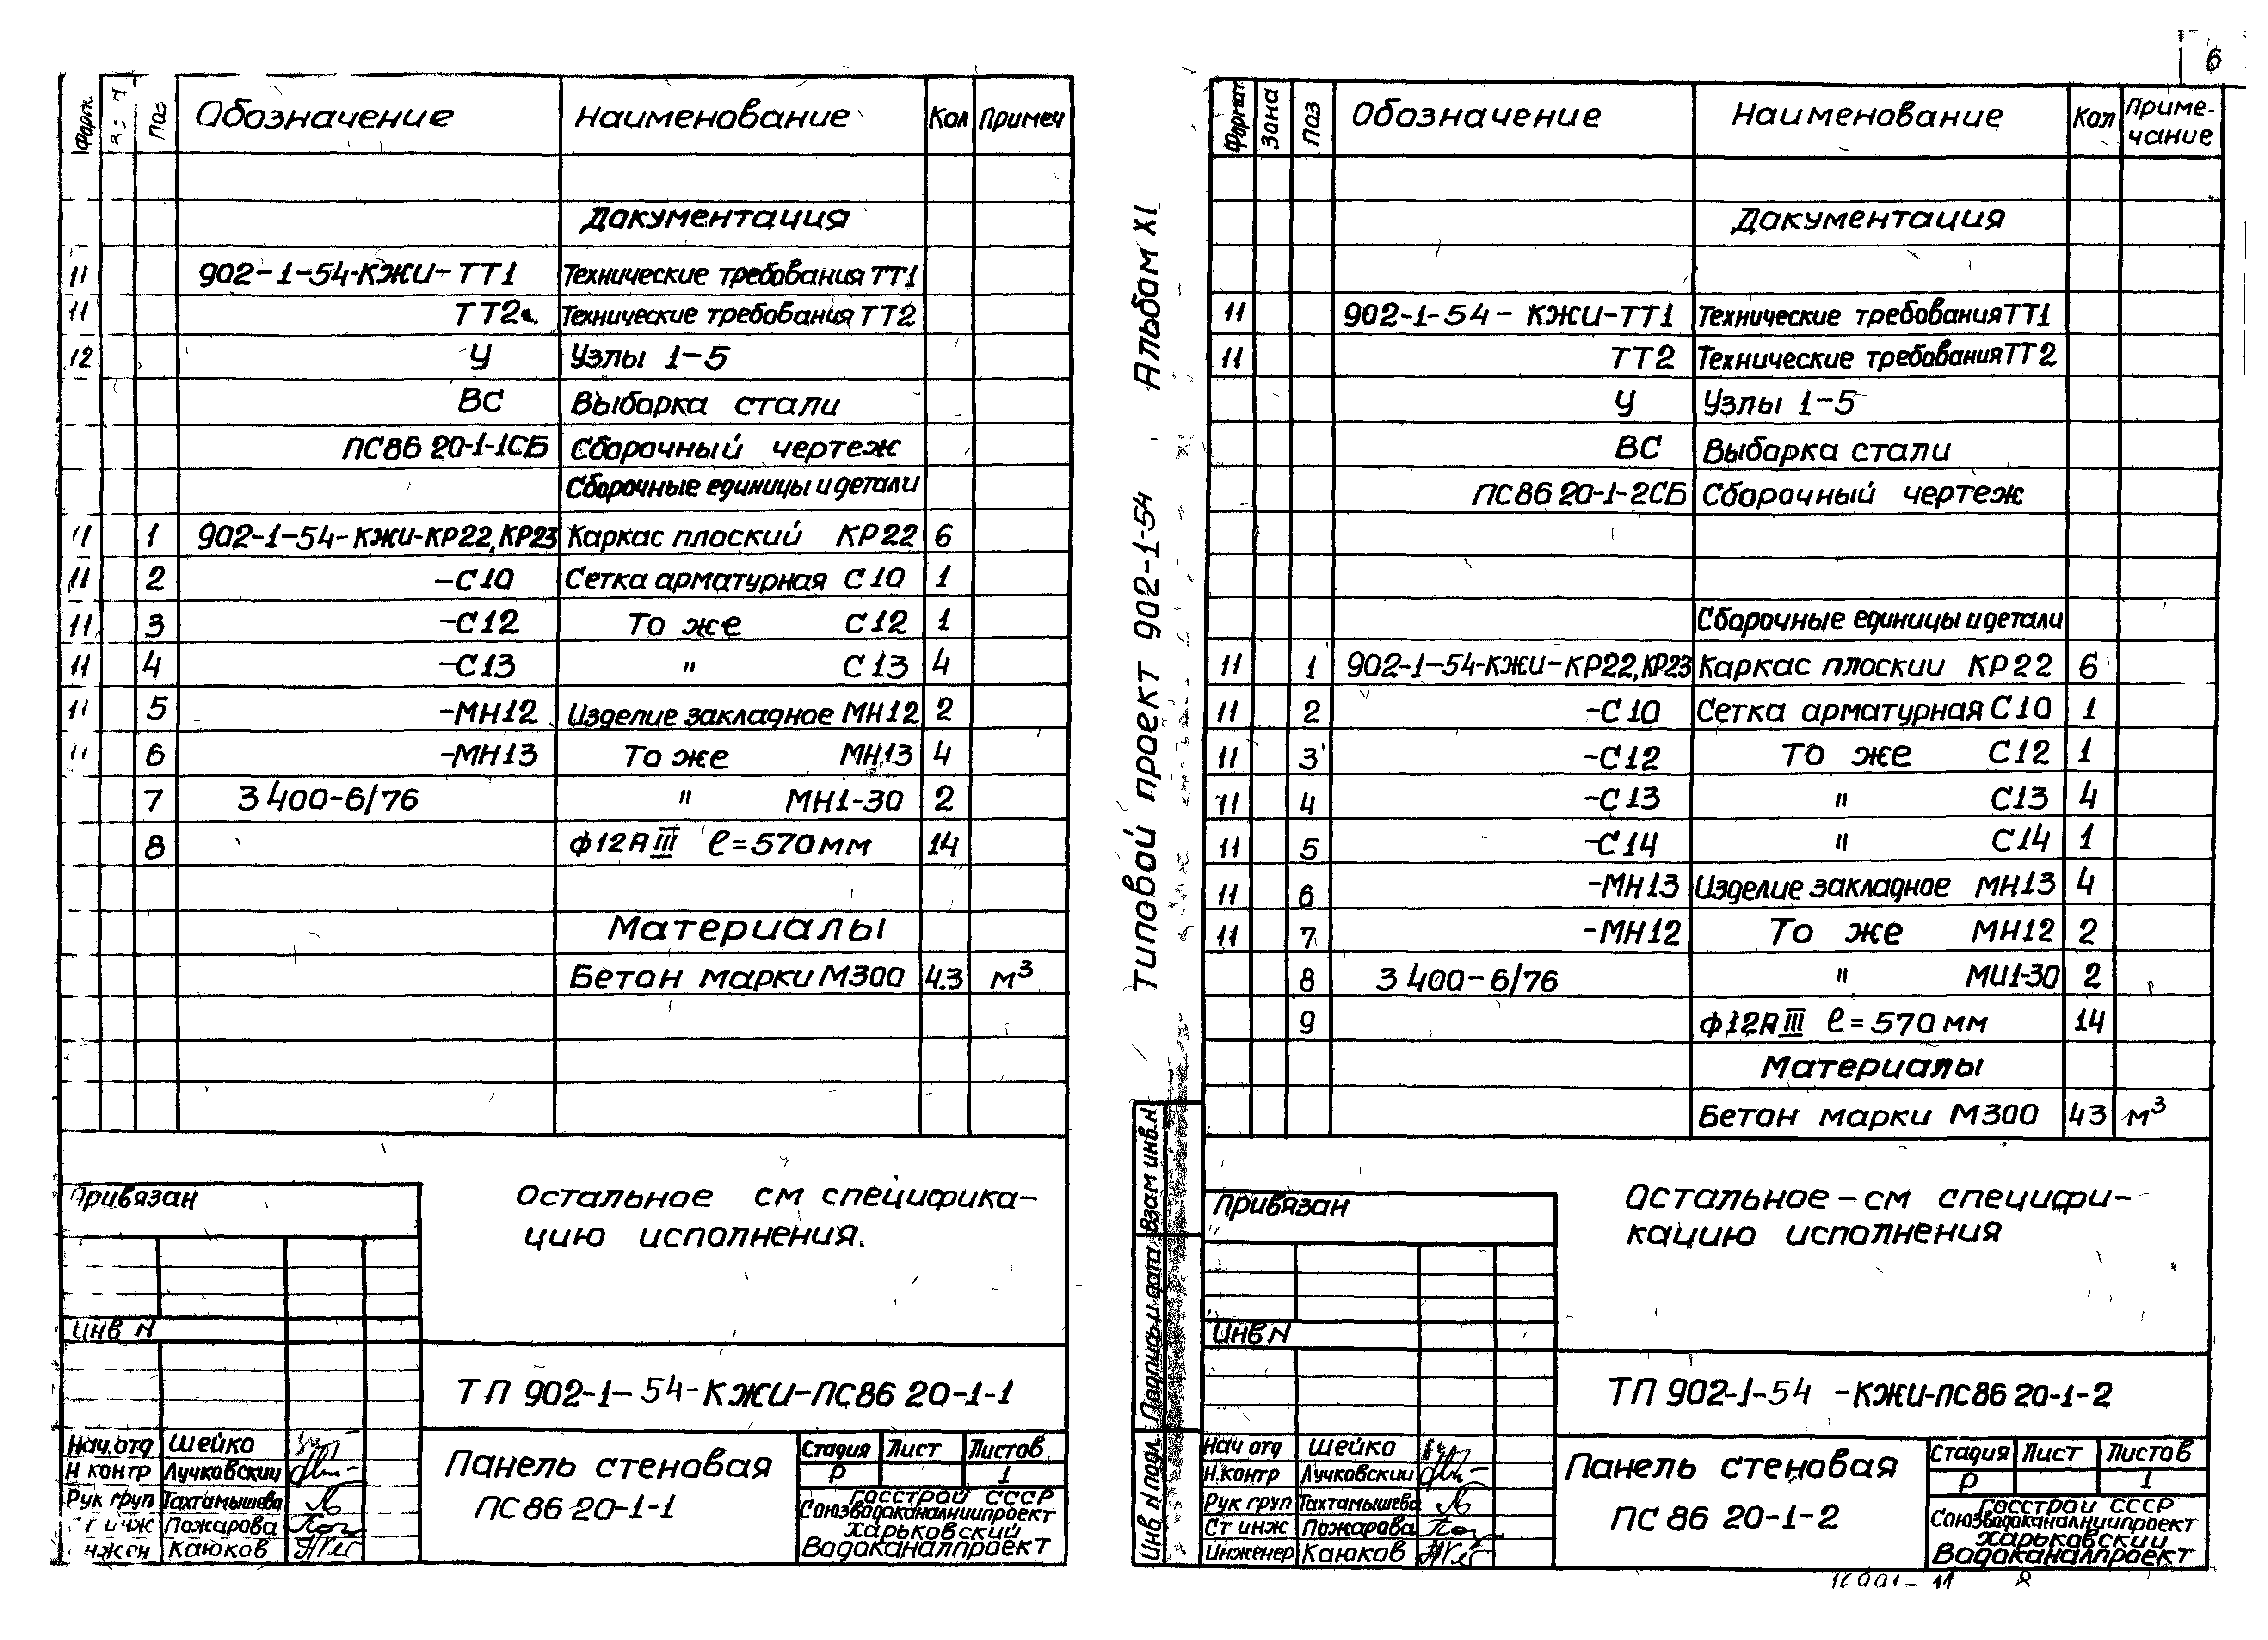 6
Форм. Поз Обозначение Наименование Кол Примеч
Документация
11 902-1-54-КЖИ-ТТ1 Технические требования ТТ1
11 ТТ2 Технические требования ТТ2
12 У Узлы 1-5
ВС Выборка стали
ПС86 20-1-1СБ Сборочный чертеж
Сборочные единицы и детали
11 1 902-1-54-КЖИ-КР22, КР23 Каркас плоский КР22 6
11 2 -С10 Сетка арматурная С10 1
11 3 -С12 То же С12 1
11 4 -С13 " С13 4
11 5 -МН12 Изделие закладное МН12 2
11 6 -МН13 То же МН13 4
7 3 400-6/76 " МН1-30 2
8 ф12АIII ℓ=570мм 14
Материалы
Бетон марки М300 4.3 м³
Привязан
Остальное см спецификa-
цию исполнения.
Инв N
ТП 902-1-54-КЖИ-ПС86 20-1-1
Нач.отд Шейко
Н контр Лучковский
Рук груп Тахтамышева
Ст инж Пожарова
нжен Каюков
Панель стеновая
ПС 86 20-1-1
Стадия Лист Листов
Р 1
Госстрой СССР
Союзводоканалниипроект
Харьковский
Водоканалпроект
Типовой проект 902-1-54 Альбом XI
Взам инв.N
Подпись и дата
Инв N подл.
Формат Зона Поз Обозначение Наименование Кол Приме-
чание
Документация
11 902-1-54-КЖИ-ТТ1 Технические требования ТТ1
11 ТТ2 Технические требования ТТ2
У Узлы 1-5
ВС Выборка стали
ПС86 20-1-2СБ Сборочный чертеж
Сборочные единицы и детали
11 1 902-1-54-КЖИ-КР22, КР23 Каркас плоскии КР22 6
11 2 -С10 Сетка арматурная С10 1
11 3 -С12 То же С12 1
11 4 -С13 " С13 4
11 5 -С14 " С14 1
11 6 -МН13 Изделие закладное МН13 4
11 7 -МН12 То же МН12 2
8 3 400-6/76 " МИ1-30 2
9 ф12АIII ℓ=570мм 14
Материалы
Бетон марки М300 43 м³
Привязан
Остальное - см специфи-
кацию исполнения
Инв N
ТП 902-1-54 -КЖИ-ПС86 20-1-2
Нач отд Шейко
Н.контр Лучковский
Рук груп Тахтамышева
Ст инж Пожарова
Инженер Каюков
Панель стеновая
ПС 86 20-1-2
Стадия Лист Листов
Р 1
Госстрой СССР
Союзводоканалниипроект
Харьковский
Водоканалпроект